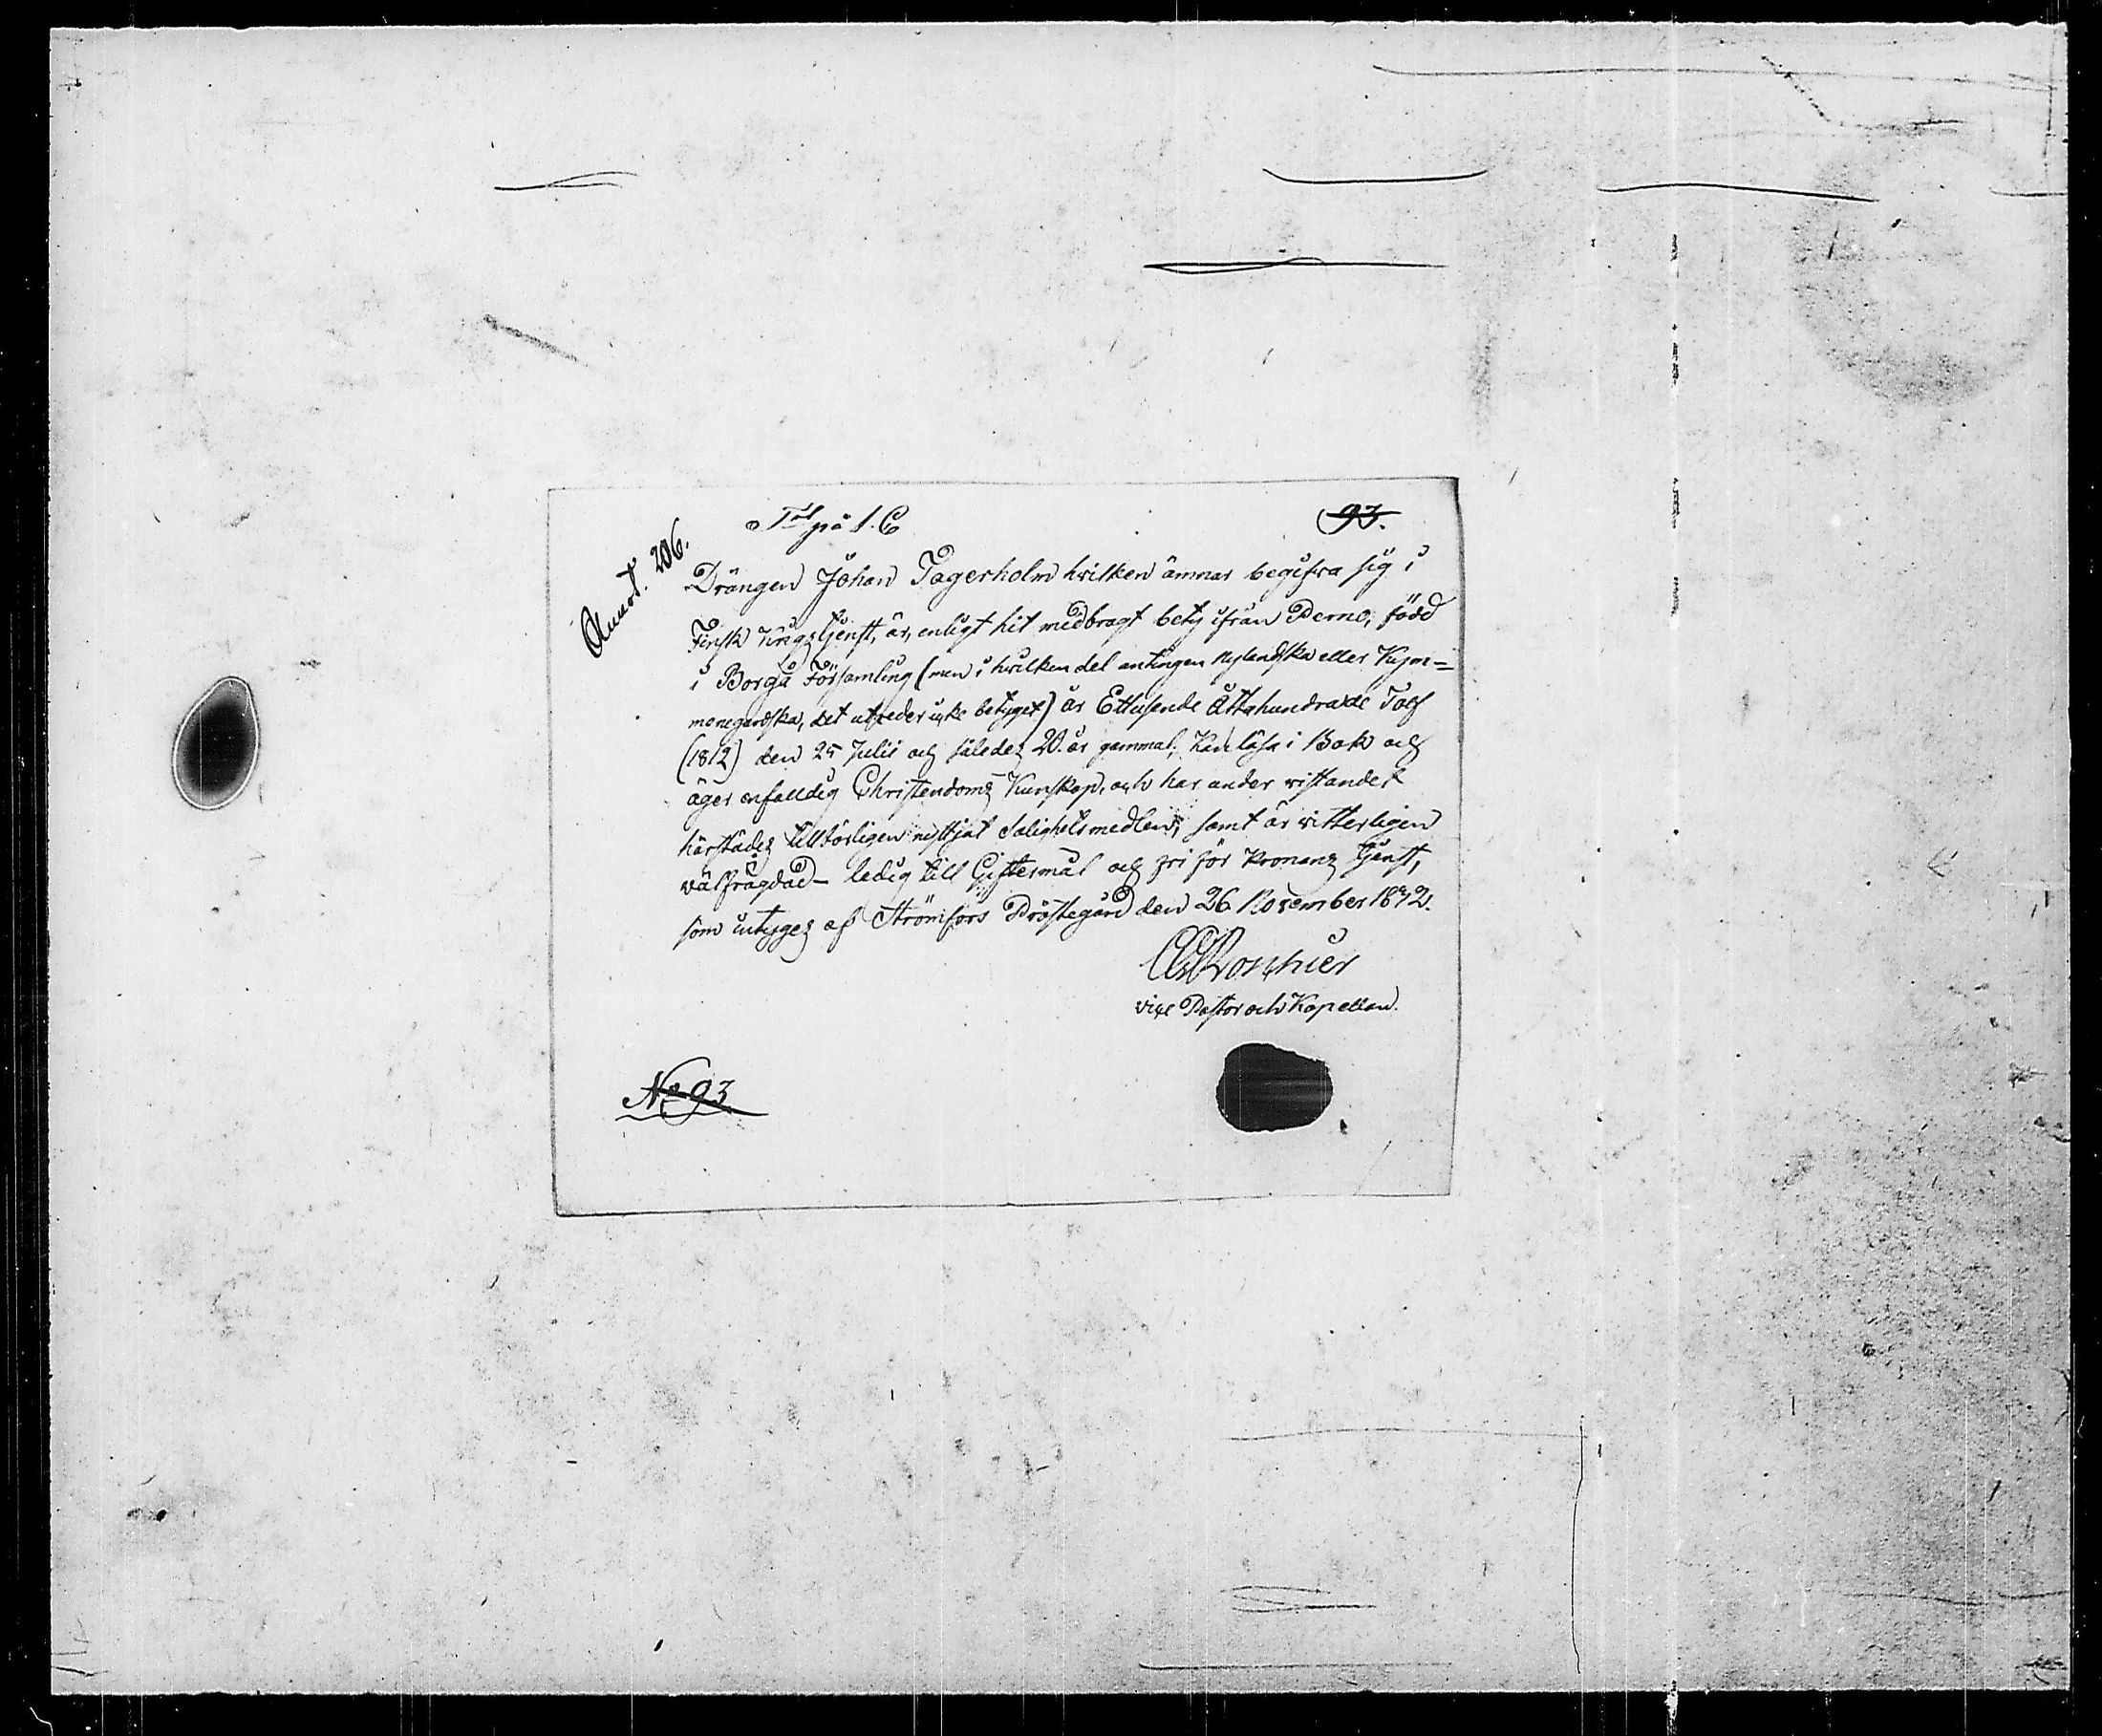 Annot. 206.
på 1. C
93.
Drängen Johan Fagerholm hvilken ämnar begifva sig i
Finsk Krigstjenst, är, enligt hit medbragt betyg ifrån Perno, född
i Borgå Församling (men i hvilken del antingen Nylandska eller Kym-
menegårdska, det utreder icke betyget) år Ettusende Åttahundrade Tolf
(1812) den 25 Julii och således 20. år gammal; Kan läsa i Bok och
äger enfalldig Christendoms Kunskap, och har under vistandet
härstädes tillbörligen nyttjat Salighetsmedlen; samt är vitterligen
välfrägdad – ledig till Giftermål och fri för Kronans tjenst,
som intygas af Strömfors Prästegård den 26 November 1832.
vice Pastor och Kapellan.
No 93